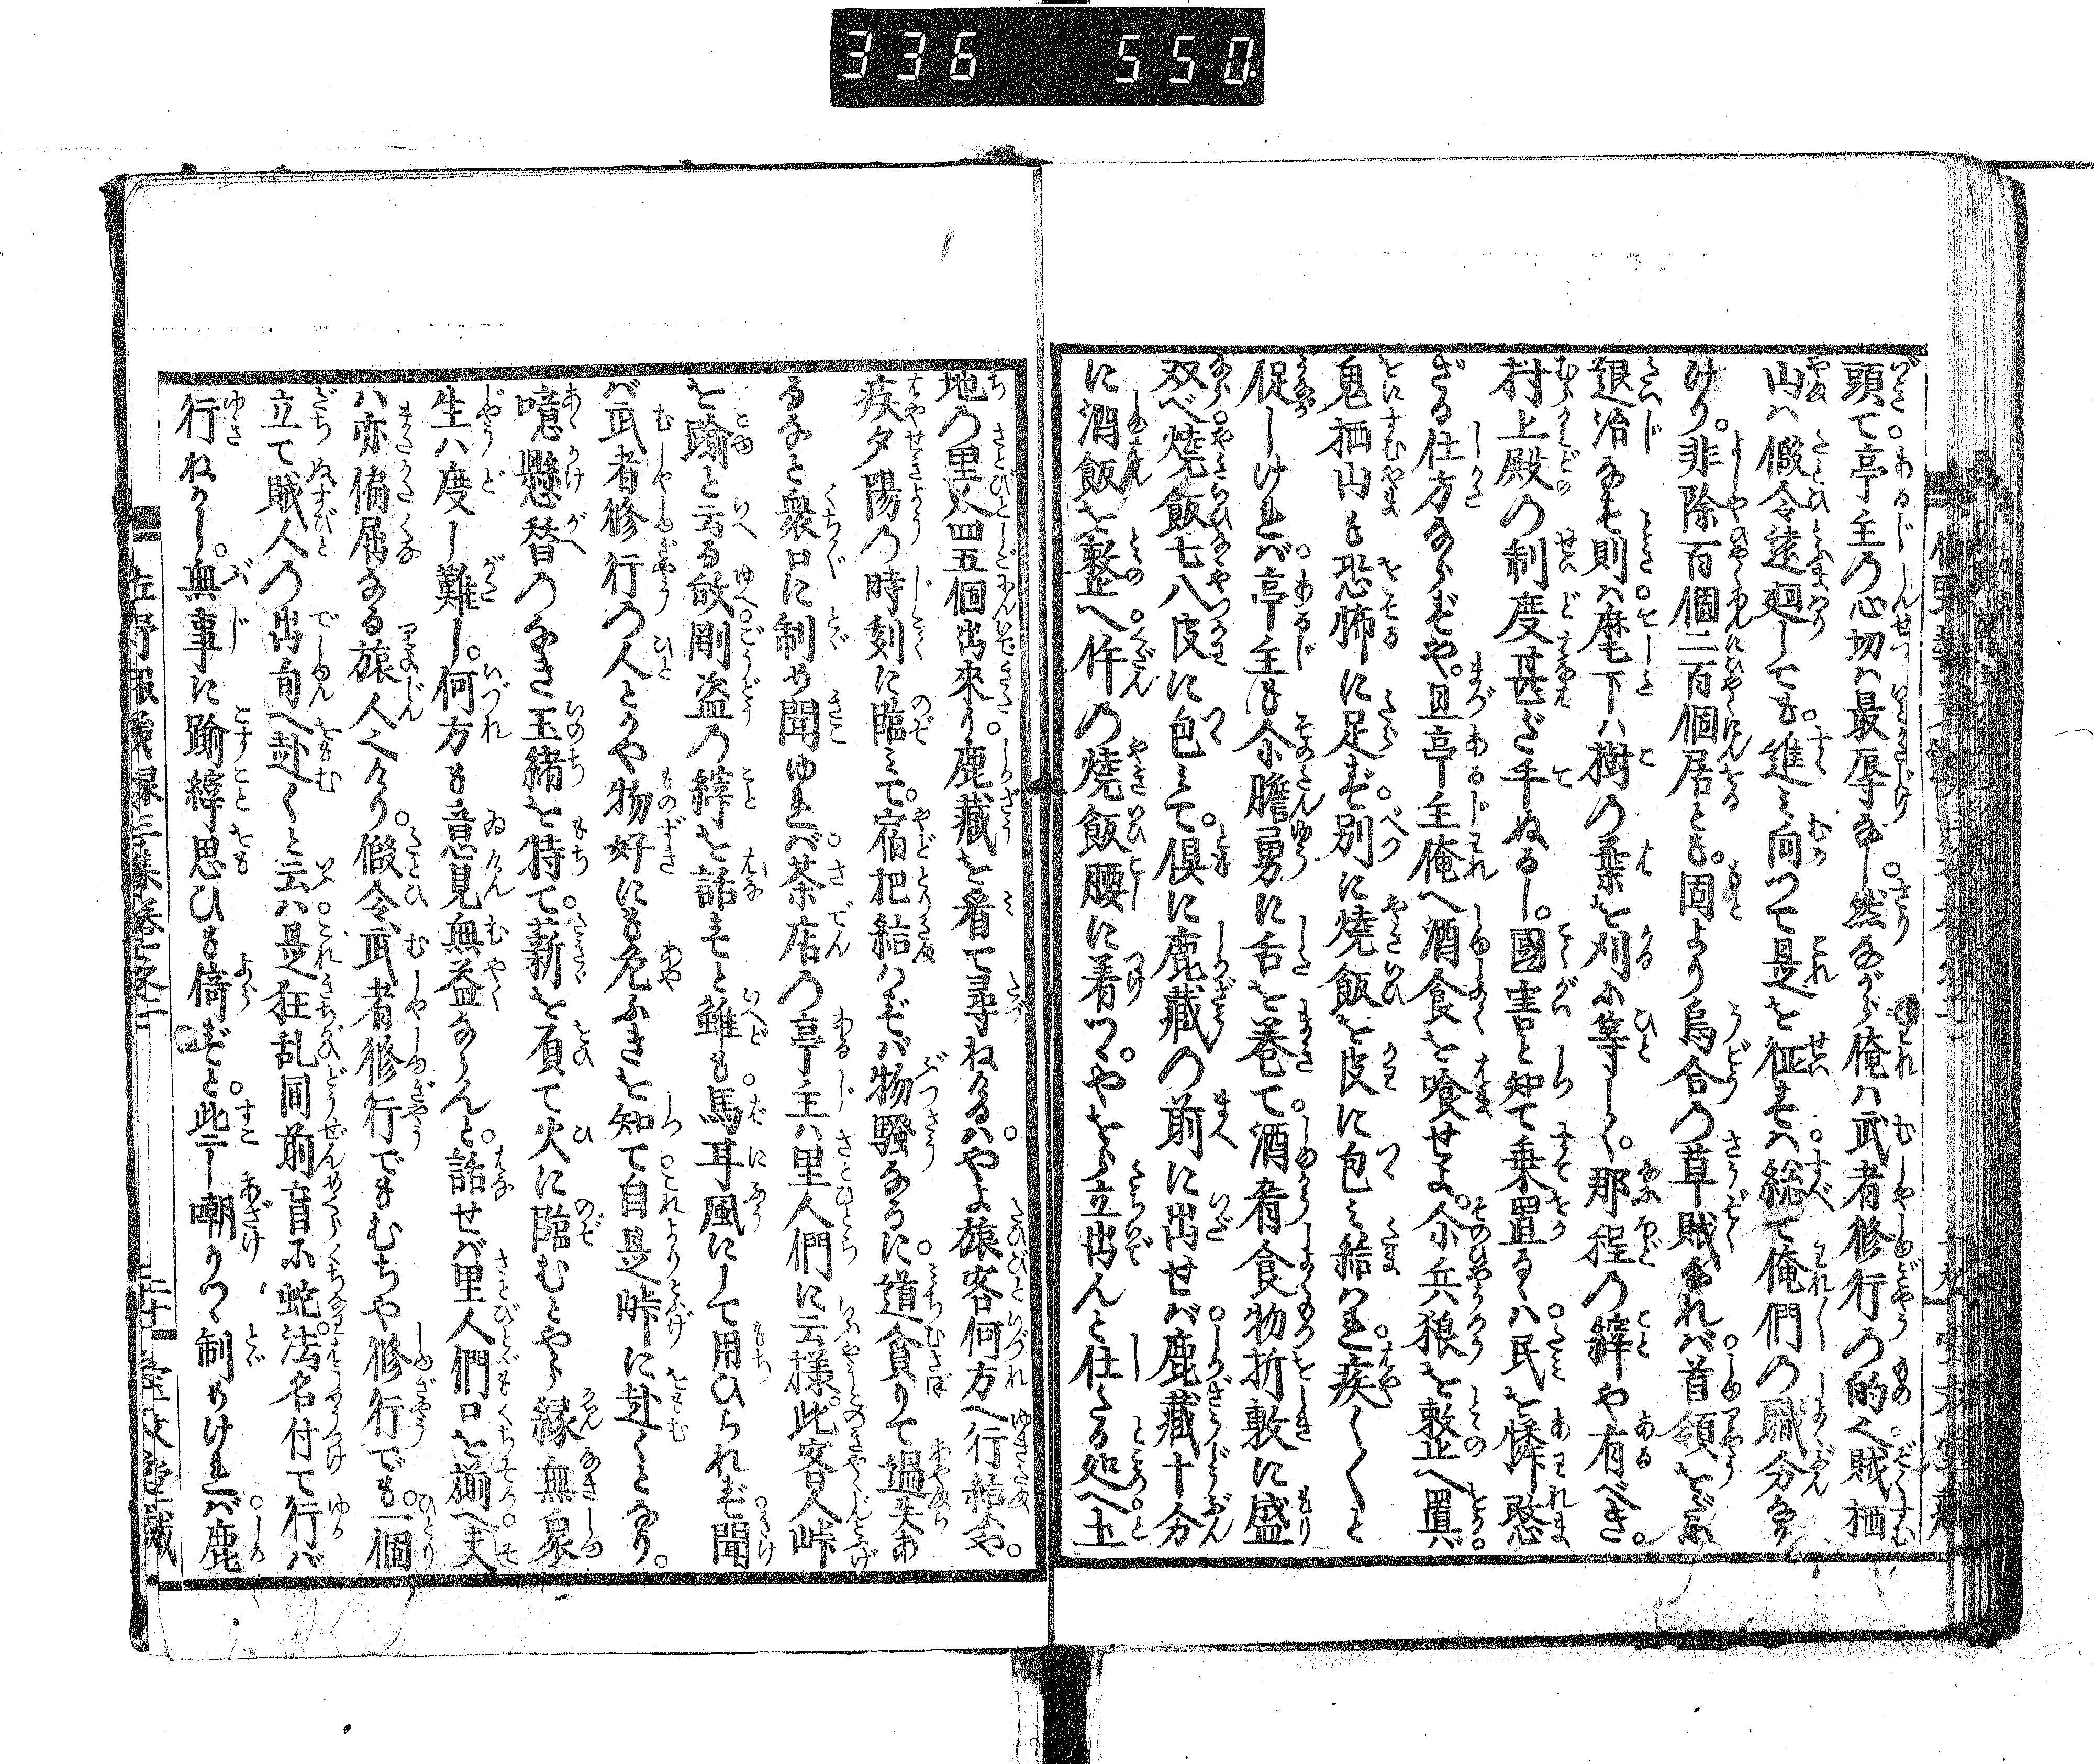 336 550
頭て亭主の心切ハ最辱なし然ながら俺ハ武者修行の的之賊栖
山ハ假令遠廻しても進み向つて是を征せハ総て俺們の職分なり
けり。非除百個二百個居とも。固より烏合の草賊なれバ首領をだに
退治なせ則ハ麾下ハ樹の葉を刈に等しく。那程の縡や有べき。
村上殿の制度甚だ手ぬるし。國害と知て乗置るゝハ民を憐愍
ざる仕方ならずや。且亭主俺へ酒食を喰せよ。尒兵狼を整へ置バ
鬼栖山も恐怖に足ず別に燒飯を皮に包み給はれ疾く〳〵と
促しけれバ亭主も尒膽勇に舌を巻て酒肴食物折敷に盛
双べ燒飯七八皮に包みて。倶に鹿藏の前に出せバ鹿藏十分
に酒飯を整へ件の燒飯腰に着つゝ。やをら立出んと仕たる処へ土
地の里人四五個出來り鹿藏を看て尋ねけるハやよ旅客何方へ行給ふや。
疾夕陽の時刻に臨みて。宿把給はずバ物騷なるに道貪りて過失あ
るなと衆口に制め聞ゆれバ茶店の亭主ハ里人們に云様。此客人峠
を踰と云る故剛盗の縡を話せと雖も馬耳風にして用ひられず聞
バ武者修行の人とかや物好にも危ふきを知て自是峠に赴くとなり。
噫懸替のなき玉緒を持て薪を負て火に臨むとやら縁無衆
生ハ度し難し。何方も意見無益ならんと。話せバ里人們口を揃へ夫
ハ亦偏屈なる旅人之けり。假令武者修行でもむちや修行でも。一個
立て賊人の出旬へ赴くと云ハ是狂乱同前盲尒蛇法名付て行バ
行ねかし。無事に踰縡思ひも倚ずと此二し嘲りつゝ制めけれバ鹿
佐野報義録三集巻之二 二十 宝文堂藏